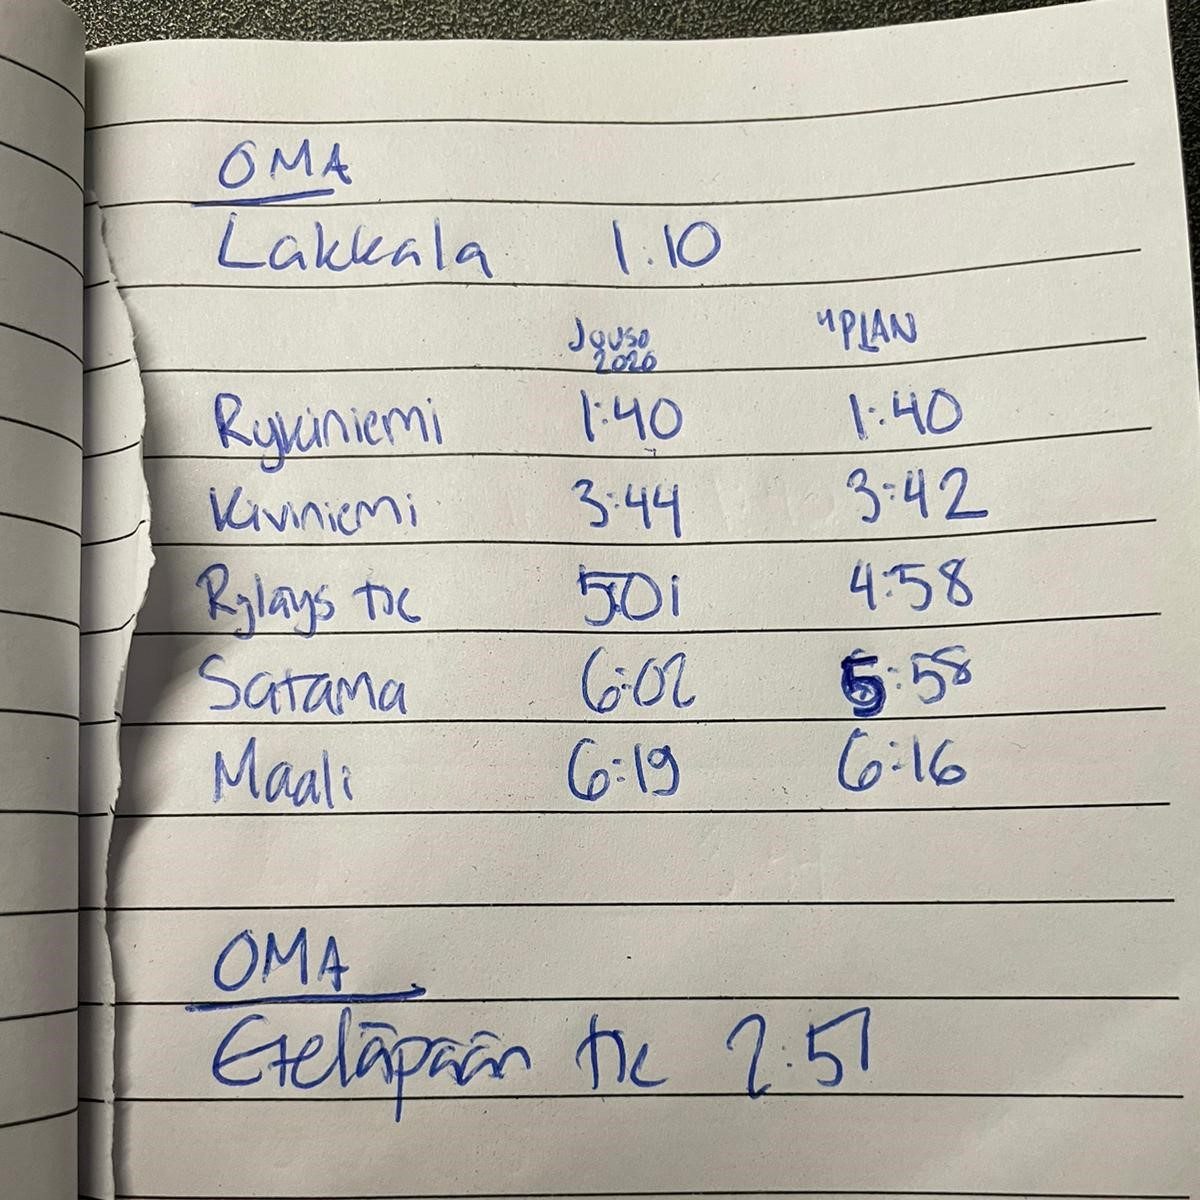 OMA
Lakkala 1.10
Jouso 2020 "PLAN
Rykiniemi 1:40 1:40
Kiviniemi 3:44 3:42
Rylays tie 5:01 4:58
Satama 6:02 5:58
Maali 6:19 6:16
OMA
Eteläpään tie 2:57